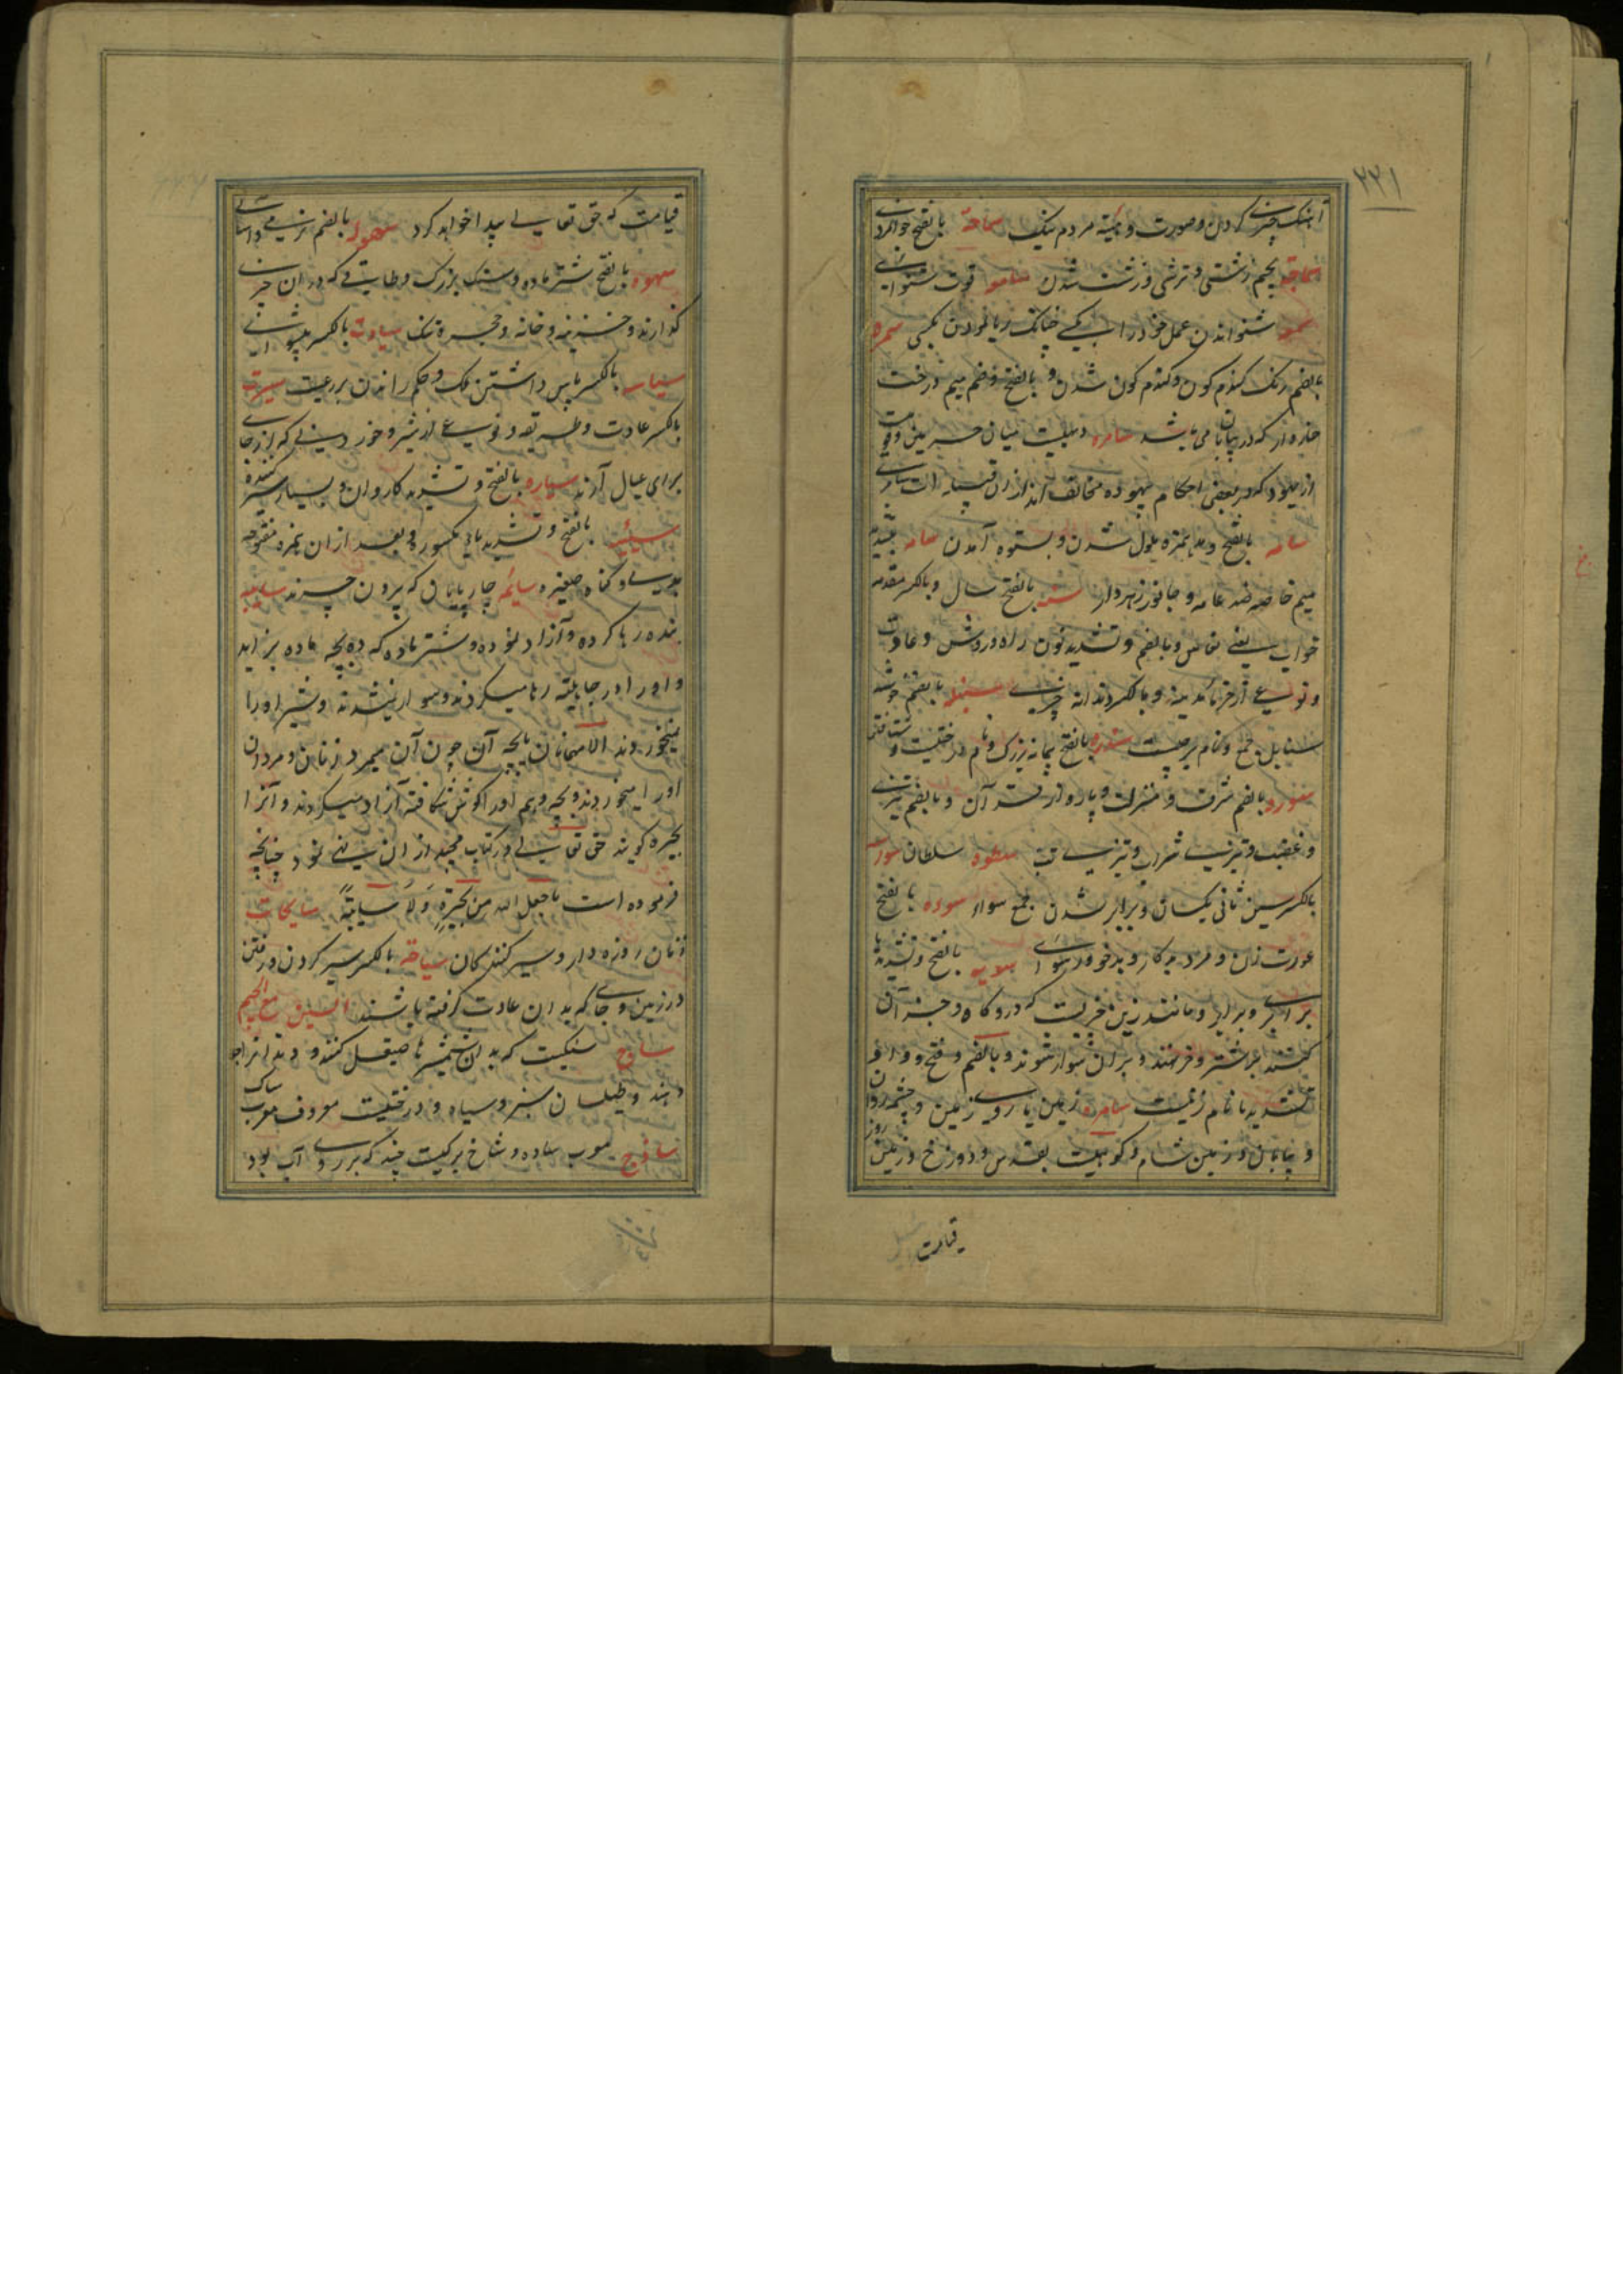 ۲۲۱
آهنک چیزی کردن و صورت و هیئة مردم نیک سماحة بالفتح جوانمردی
سماجة بجیم زشتی و ترشی و زشت شدن سامعة قوت شنوایی
سمعة شنوانیدن عمل خود را بکسی چنانک ریا نمودن بکسی سمرة
بالضم رنک کندم کون و کندم کون شدن و بالفتح و ضم میم درخت
خاردار که در بیابان می باشد سامره
از یهود که در بعضی احکام یهود مخالف اند از ان قبیله است سامری
سامة بالفتح و مد همزه ملول شدن و بستوه آمدن سامة بتشدید
میم خاصه ضد عامه و جانور زهردار سنة بالفتح سال و بالکسر مقدمه
خواب یعنی نعاس و بالضم و تشدید نون راه و روش و عادت
و نوعی از خرمای مدینه و بالکسر دندانه چیزی سنبلة بالضم خوشه
سنابل جمع و نام برجیست سندره بالفتح پیمانه بزرک و نام درختیست و شتافتن
سوره بالضم شرف و منزلت و پاره از قرآن و بالفتح تیزی
و غضب و تیزی شراب و تیزی تب سطوة سلطان سواسیة
بالکسر سین ثانی یکسان و برابر شدن جمع سواء سوءة بالفتح
عورت زن و مرد و کار بد و خود رسوای سویة بالفتح و تشدید یا
برابری و برابر و مانند زین چیزیست که درو کاه و جز آن
کنند بر شتر و خر نهند و بران سوار شوند و بالضم و فتح واو و
تشدید یا نام زنیست ساهرة زمین یا روی زمین و چشمه روان
و بیابان و زمین شام و کوهیست بقدس و دوزخ و زمین روز
قیامت
قیامت که حق تعالی پیدا خواهد کرد سهولة بالضم نرمی و آسانی
سهوة بالفتح شتر ماده و سنک بزرک و طاقی که در ان چیزی
کذارند و خزینه و خانه و حجره تنک سیادت بالکسر پیشوائی
سیاست بالکسر پاس داشتن ملک و حکم راندن بر رعیت سیرت
بالکسر عادت و طریقه و نوعی از سیر و خوردنی که از جای
برای عیال آرند سیاره بالفتح و تشدید کاروان و بسیار سیر کننده
سیئة بالفتح و تشدید یای مکسوره و بعد از ان همزه مفتوحه
بدی و کناه صغیره سائمة چارپایانی که بیرون چرند سایبة
بنده رها کرده و آزاد نموده و شتر ماده که ده بچه ماده بزاید
و او را در جاهلیة رها میکردند و سوار نمیشدند و شیر او را
نمیخوردند الا مهمانان یا بچه آن چون آن میمرد زنان و مردان
او را میخوردند و بچه دهم او را کوش شکافته آزاد میکردند و آنرا
بحیره کویند حق تعالی در کتاب مجید از ان نهی نمود چنانچه
فرموده است ما جعل الله من بحیرة ولا سایبة سایحات
زنان روزه دار و سیر کنندکان سیاحة بالکسر سیر کردن و رفتن
در زمین و جای که بدان عادت کرفته باشند السین مع الجیم
ساج سنکیست که بدان شمشیرها صیقل کنند و دندانرا جلا
دهند و طیلسان سبز و سیاه و درختیست معروف معرب ساک
ساذج معرب ساده و شاخ برکیست چند که بر روی آب بود